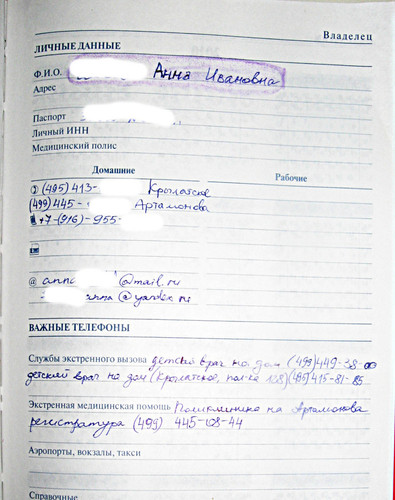 Владелец
ЛИЧНЫЕ ДАННЫЕ
Ф.И.О. Анна Ивановна
Адрес
Паспорт
Личный ИНН
Медицинский полис
Домашние Рабочие
(495) 413- Крылатское
(499) 445- Артамонова
+7-(916)-955-
@ anna @mail.ru
anna @yandex.ru
ВАЖНЫЕ ТЕЛЕФОНЫ
Службы экстренного вызова детский врач на дом (499)449-38-00
детский врач на дом (Крылатское, пол-ка 128) (495) 415-81-85
Экстренная медицинская помощь Поликлиника на Артамонова
регистратура (499) 445-08-44
Аэропорты, вокзалы, такси
Справочные